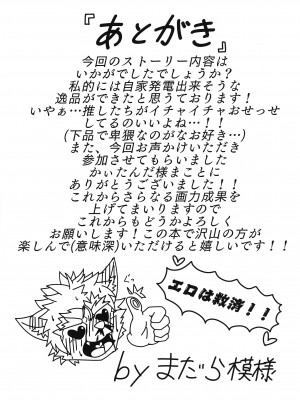 『あとがき』
今回のストーリー内容は
いかがでしたでしょうか？
私的には自家発電出来そうな
逸品ができたと思うております！
いやぁ…推したちがイチャイチャおせっせ
してるのいいよね…！！
(下品で卑猥なのがなお好き…)
また、今回お声かけいただき
参加させてもらいました
かぃたんだ様まことに
ありがとうございました！！
これからさらなる画力成果を
上げてまいりますので
これからもどうかよろしく
お願いします！この本で沢山の方が
楽しんで(意味深)いただけると嬉しいです！！
エロは救済！！
by まだら模様